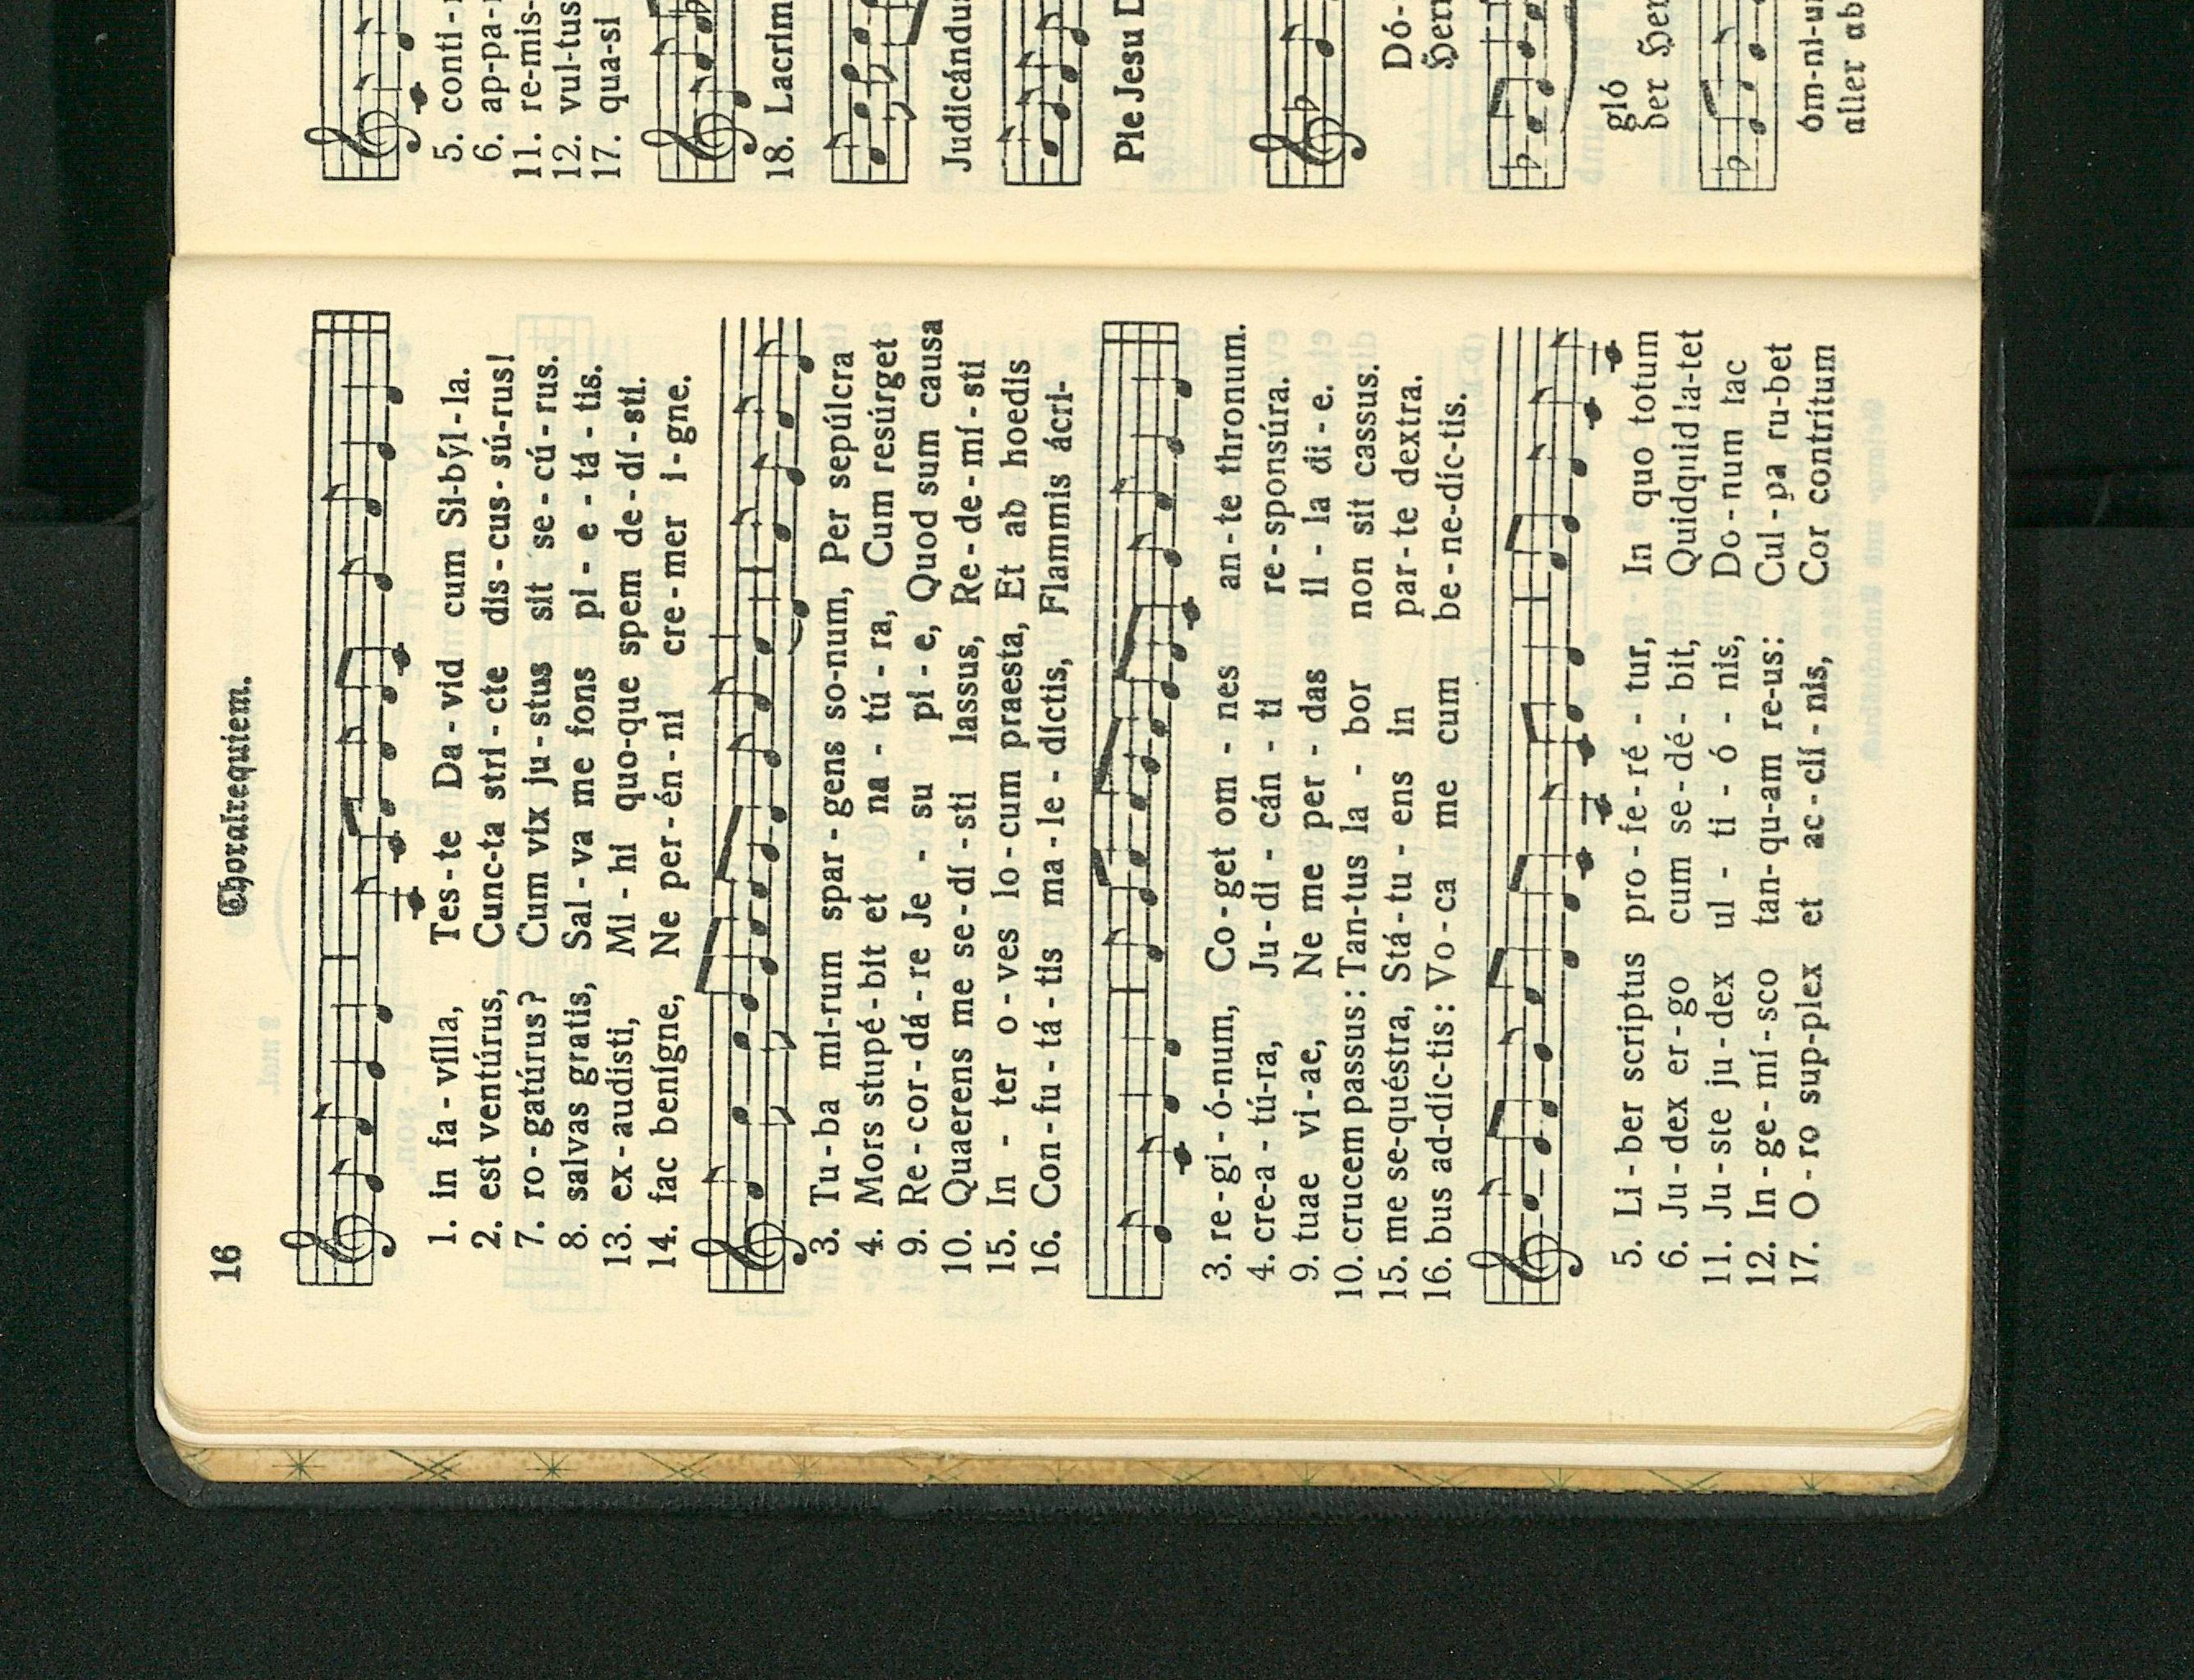 16
Choralrequiem.
1. in fa - vílla, Tes - te Da - vid cum Si-býl - la.
2. est ventúrus, Cunc-ta stri - cte dis - cus - sú-rus!
7. ro - gatúrus? Cum vix ju - stus sit se - cú - rus.
8. salvas gratis, Sal - va me fons pi - e - tá - tis.
13. ex - audísti, Mi - hi quo-que spem de - dí - sti.
14. fac benígne, Ne per - én - ni cre - mer i - gne.
3. Tu - ba mi-rum spar - gens so-num, Per sepúlcra
4. Mors stupé - bit et na - tú - ra, Cum resúrget
9. Re - cor - dá - re Je - su pi - e, Quod sum causa
10. Quaerens me se - dí - sti lassus, Re - de - mí - sti
15. In - ter o - ves lo - cum praesta, Et ab hoedis
16. Con - fu - tá - tis ma - le - díctis, Flammis ácri-
3. re - gi - ó-num, Co - get om - nes an - te thronum.
4. cre-a - tú-ra, Ju - di - cán - ti re - sponsúra.
9. tuae vi - ae, Ne me per - das il - la di - e.
10. crucem passus: Tan-tus la - bor non sit cassus.
15. me se-quéstra, Stá - tu - ens in par - te dextra.
16. bus ad-díc-tis: Vo - ca me cum be - ne-díc-tis.
5. Li - ber scriptus pro - fe - ré - tur, In quo totum
6. Ju - dex er - go cum se - dé - bit, Quidquid la-tet
11. Ju - ste ju - dex ul - ti - ó - nis, Do - num fac
12. In - ge - mí - sco tan - qu-am re-us: Cul - pa ru-bet
17. O - ro sup-plex et ac - clí - nis, Cor contrítum
5. conti -
6. ap-pa-
11. re-mis-
12. vul-tus
17. qua-si
18. Lacrim
Judicándu
Pie Jesu D
Dó-
Herr
gló
der Her
óm-ni-u
aller ab